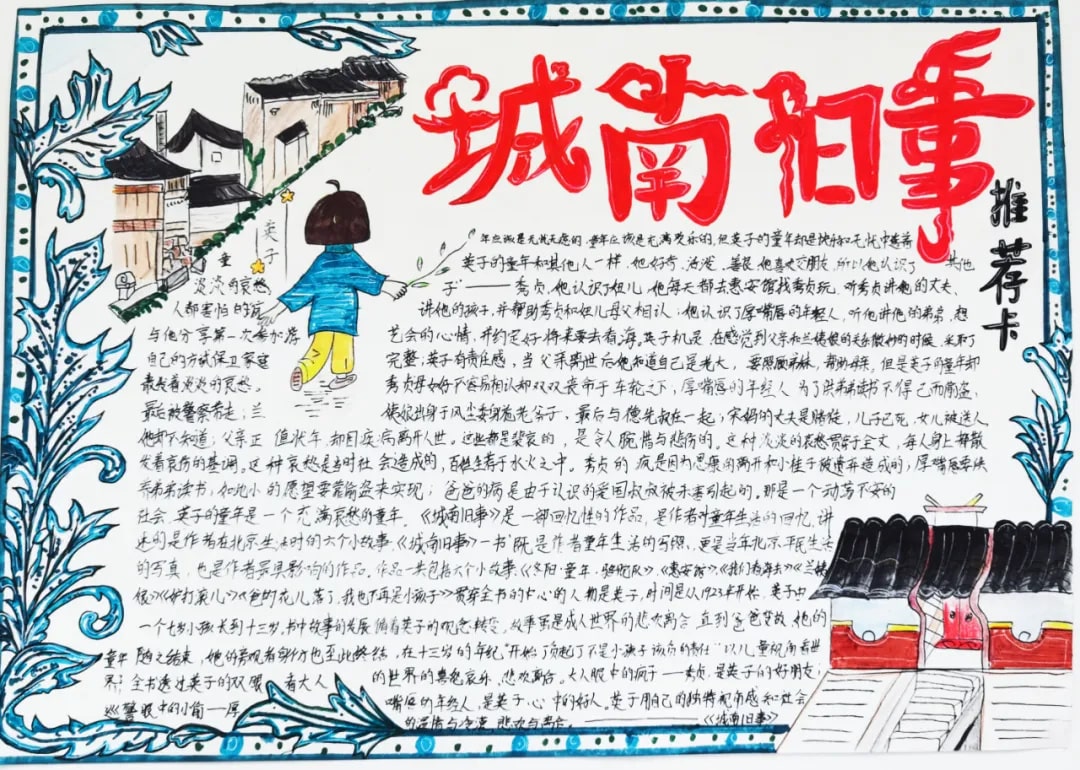 城南旧事
推荐卡
英子
年应该是无忧无愿的,童年应该是充满欢乐的,但英子的童年却是快乐和无忧中夹着
童 英子的童年和其他人一样,她好奇、活泼、善良,她喜欢交朋友,所以她认识了 其他
淡淡的哀愁, 子"——秀贞,她认识了妞儿,她每天都去惠安馆找秀贞玩,听秀贞讲她的丈夫、
人都害怕的"疯 讲她的孩子,并帮助秀贞和妞儿母女相认;她认识了厚嘴唇的年轻人,听他讲他的弟弟,想
与他分享第一次参加游 艺会的心情,并约定好将来要去看海,英子机灵,在感觉到父亲和兰姨娘的关系微妙的时候,采取了
自己的方式保卫家庭 完整;英子有责任感,当父亲离世后她知道自己是老大,要照顾弟妹,帮助母亲。但是英子的童年却
最长着淡淡的哀愁。 秀贞母女好不容易相认却双双丧命于车轮之下,厚嘴唇的年轻人为了供弟弟读书不得已而偷盗,
最后被警察带走;兰 姨娘出身于风尘委身施老爷子,最后与德先叔在一起;宋妈的丈夫是赌徒,儿子已死,女儿被送人
他却不知道;父亲正 值壮年,却因疾病离开人世。这些都是悲哀的,是令人惋惜与悲伤的。这种淡淡的哀愁贯穿于全文,每人身上都散
发着哀伤的基调。这种哀愁是当时社会造成的,百姓生存于水火之中。秀贞的疯是因为思康的离开和小桂子被遗弃造成的,厚嘴唇要供
养弟弟读书,如此小的愿望要靠偷盗来实现;爸爸的病是由于认识的爱国叔叔被杀害引起的。那是一个动荡不安的
社会,英子的童年是一个充满哀愁的童年。《城南旧事》是一部回忆性的作品,是作者对童年生活的回忆,讲
述的是作者在北京生活时的六个小故事。《城南旧事》一书既是作者童年生活的写照,更是当年北京平民生活
的写真,也是作者最具影响的作品。作品一共包括六个小故事:《冬阳·童年·骆驼队》、《惠安馆》、《我们看海去》、《兰姨
娘》、《驴打滚儿》、《爸的花儿落了,我也不再是小孩子》贯穿全书的中心的人物是英子,时间是从1923年开始,英子由
一个七岁小孩长到十三岁,书中故事的发展循着英子的观念转变。故事虽是成人世界的悲欢离合,直到爸爸货故,她的
童年随之结束,她的旁观者身份也至此终结,在十三岁的年纪"开始了负起了不是小孩子该负的责任"以儿童视角看世
界:全书透过英子的双眼 着大人的世界的喜怒哀乐、悲欢离合。大人眼中的疯子——秀贞,是英子的好朋友;
警眼中的小偷——厚 嘴唇的年轻人,是英子心中的好人,英子用自己的独特视角感知社会
的温情与冷漠,悲欢与离合。——《城南旧事》